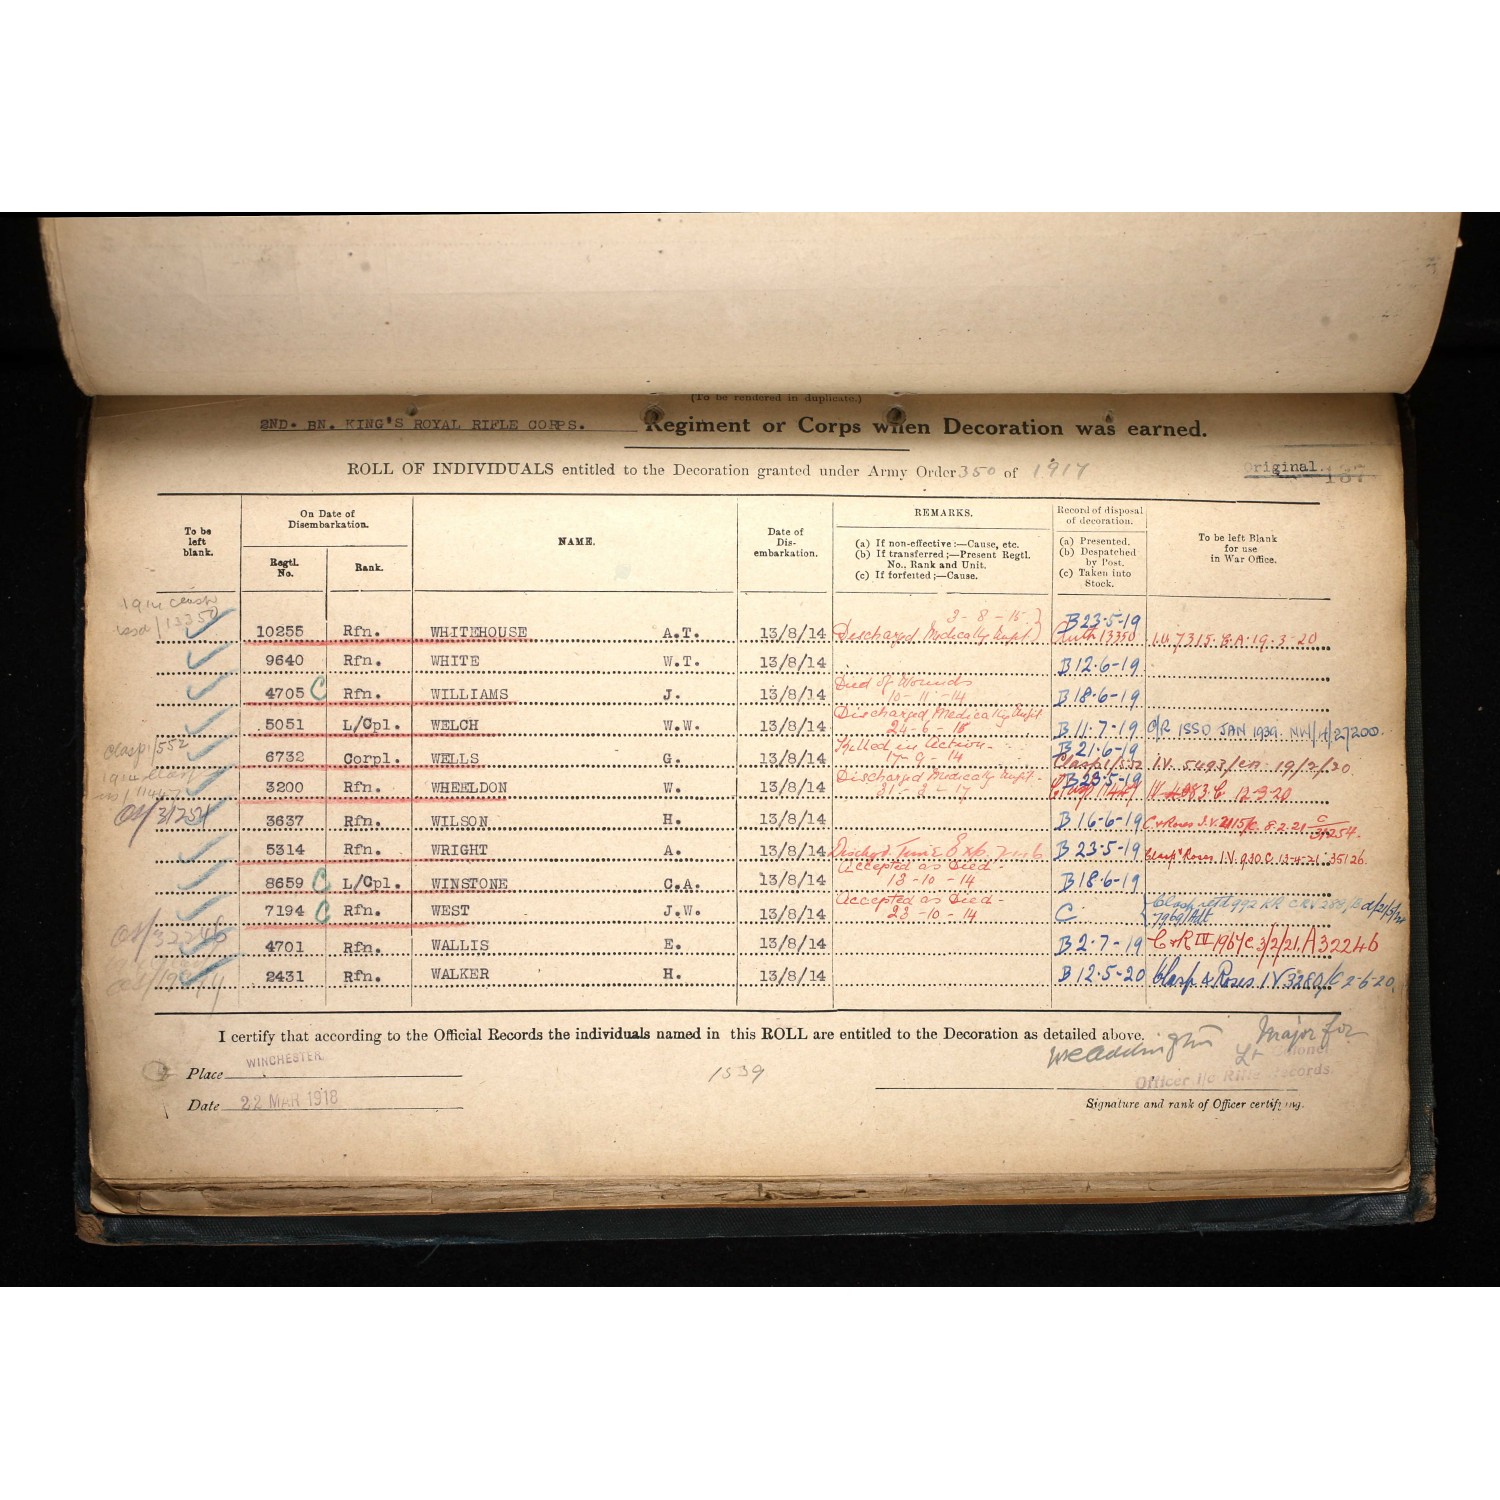 (To be rendered in duplicate.)
2ND. BN. KING'S ROYAL RIFLE CORPS. Regiment or Corps when Decoration was earned.
ROLL OF INDIVIDUALS entitled to the Decoration granted under Army Order 350 of 1917
Original. 187
To be left blank.
On Date of Disembarkation.
Regtl. No.
Rank.
NAME.
Date of Dis-embarkation.
REMARKS.
(a) If non-effective:—Cause, etc.
(b) If transferred;—Present Regtl. No., Rank and Unit.
(c) If forfeited;—Cause.
Record of disposal of decoration.
(a) Presented.
(b) Despatched by Post.
(c) Taken into Stock.
To be left Blank for use in War Office.
10255 Rfn. WHITEHOUSE A.T. 13/8/14 Discharged Medically Unfit 3-8-15 B 23-5-19 Auth 13350 I.V. 7315. E.A. 19-3-20
9640 Rfn. WHITE W.T. 13/8/14 B 12-6-19
4705 C Rfn. WILLIAMS J. 13/8/14 Died of Wounds 10-11-14 B 18-6-19
5051 L/Cpl. WELCH W.W. 13/8/14 Discharged Medically Unfit 24-6-15 B 11-7-19 C/R ISSD JAN 1939. NW/4/27200.
Clasp/552
6732 Corpl. WELLS G. 13/8/14 Killed in Action 17-9-14 B 21-6-19 Clasp 1/552 I.V. 5493/EA. 19/2/20
3200 Rfn. WHEELDON W. 13/8/14 Discharged Medically Unfit 31-3-17 B 23-5-19 Clasp 11447 IV 4983 E 12-3-20
3637 Rfn. WILSON H. 13/8/14 B 16-6-19 C & Roses I.V. 2115/E. 8-2-21 C/31254.
5314 Rfn. WRIGHT A. 13/8/14 B 23-5-19 Clasp & Roses I.V. 930 C 13-4-21 35126.
8659 C L/Cpl. WINSTONE C.A. 13/8/14 Accepted as Died 13-10-14 B 18-6-19
7194 C Rfn. WEST J.W. 13/8/14 Accepted as Died 23-10-14 C
4701 Rfn. WALLIS E. 13/8/14 B 2-7-19 C & R IV 1967C 3/2/21. A32246
2431 Rfn. WALKER H. 13/8/14 B 12-5-20 Clasp & Roses I V 3280/C 2-6-20.
I certify that according to the Official Records the individuals named in this ROLL are entitled to the Decoration as detailed above.
Major for
Lt Colonel
Officer i/c Rifle Records.
Place WINCHESTER.
1539
Date 22 MAR 1918
Signature and rank of Officer certifying.